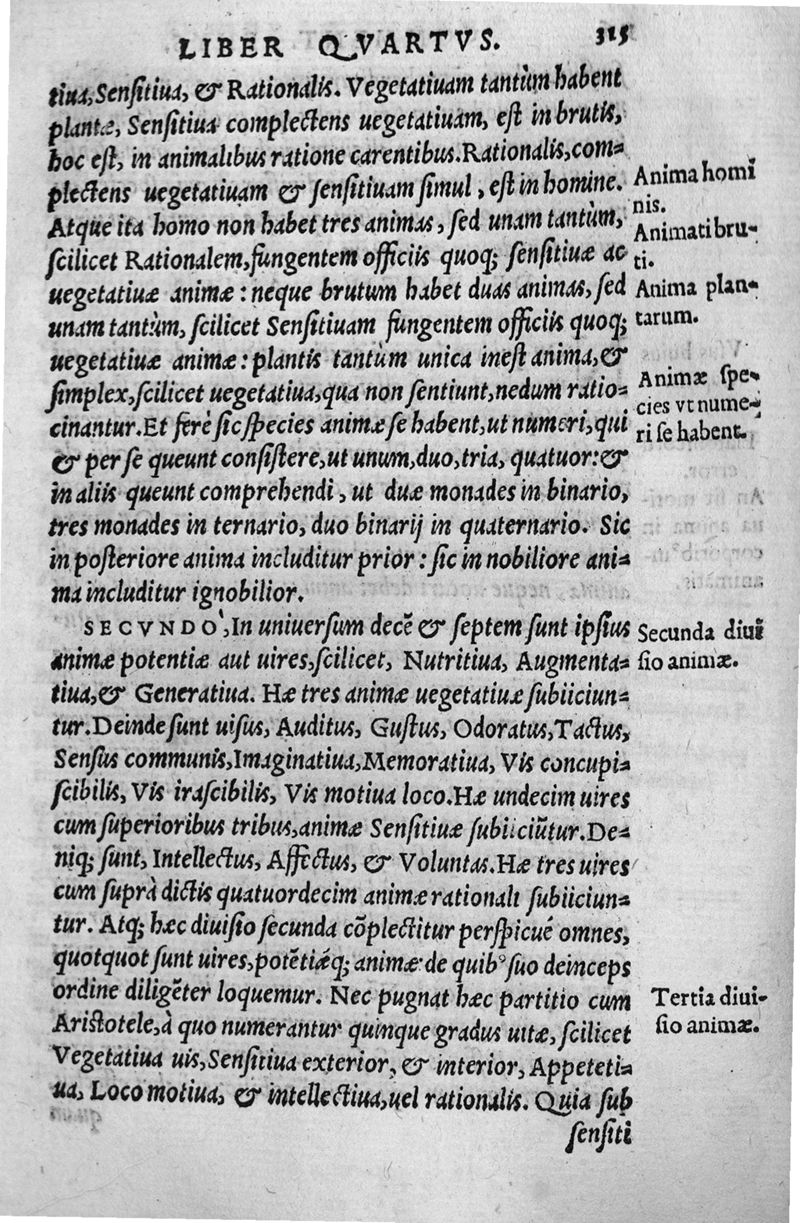 LIBER QVARTVS. 315
tiua, Senſitiua, & Rationalis. Vegetatiuam tantùm habent
plantæ, Senſitiua complectens uegetatiuam, eſt in brutis,
hoc eſt, in animalibus ratione carentibus. Rationalis, com-
plectens uegetatiuam & ſenſitiuam ſimul, eſt in homine.
Atque ita homo non habet tres animas, ſed unam tantùm,
ſcilicet Rationalem, fungentem officiis quoq; ſenſitiuæ ac
uegetatiuæ animæ: neque brutum habet duas animas, ſed
unam tantùm, ſcilicet Senſitiuam fungentem officiis quoq;
uegetatiuæ animæ: plantis tantùm unica ineſt anima, &
ſimplex, ſcilicet uegetatiua, qua non ſentiunt, nedum ratio-
cinantur. Et ferè ſic ſpecies animæ ſe habent, ut numeri, qui
& per ſe queunt conſiſtere, ut unum, duo, tria, quatuor: &
in aliis queunt comprehendi, ut duæ monades in binario,
tres monades in ternario, duo binarij in quaternario. Sic
in poſteriore anima includitur prior: ſic in nobiliore ani-
ma includitur ignobilior.
SECVNDO, In uniuerſum decē & ſeptem ſunt ipſius
animæ potentiæ aut uires, ſcilicet, Nutritiua, Augmenta-
tiua, & Generatiua. Hæ tres animæ uegetatiuæ ſubiiciun-
tur. Deinde ſunt uiſus, Auditus, Guſtus, Odoratus, Tactus,
Senſus communis, Imaginatiua, Memoratiua, Vis concupi-
ſcibilis, Vis iraſcibilis, Vis motiua loco. Hæ undecim uires
cum ſuperioribus tribus, animæ Senſitiuæ ſubiiciūtur. De-
niq; ſunt, Intellectus, Affectus, & Voluntas. Hæ tres uires
cum ſuprà dictis quatuordecim animæ rationali ſubiiciun-
tur. Atq; hæc diuiſio ſecunda cōplectitur perſpicué omnes,
quotquot ſunt uires, potētiáq; animæ de quibꝰ ſuo deinceps
ordine diligēter loquemur. Nec pugnat hæc partitio cum
Ariſtotele, à quo numerantur quinque gradus uitæ, ſcilicet
Vegetatiua uis, Senſitiua exterior, & interior, Appeteti-
ua, Loco motiua, & intellectiua, uel rationalis. Quia ſub
ſenſiti
Anima homi
nis.
Animati bru-
ti.
Anima plan-
tarum.
Animæ ſpe-
cies vt nume-
ri ſe habent.
Secunda diui
ſio animæ.
Tertia diui-
ſio animæ.